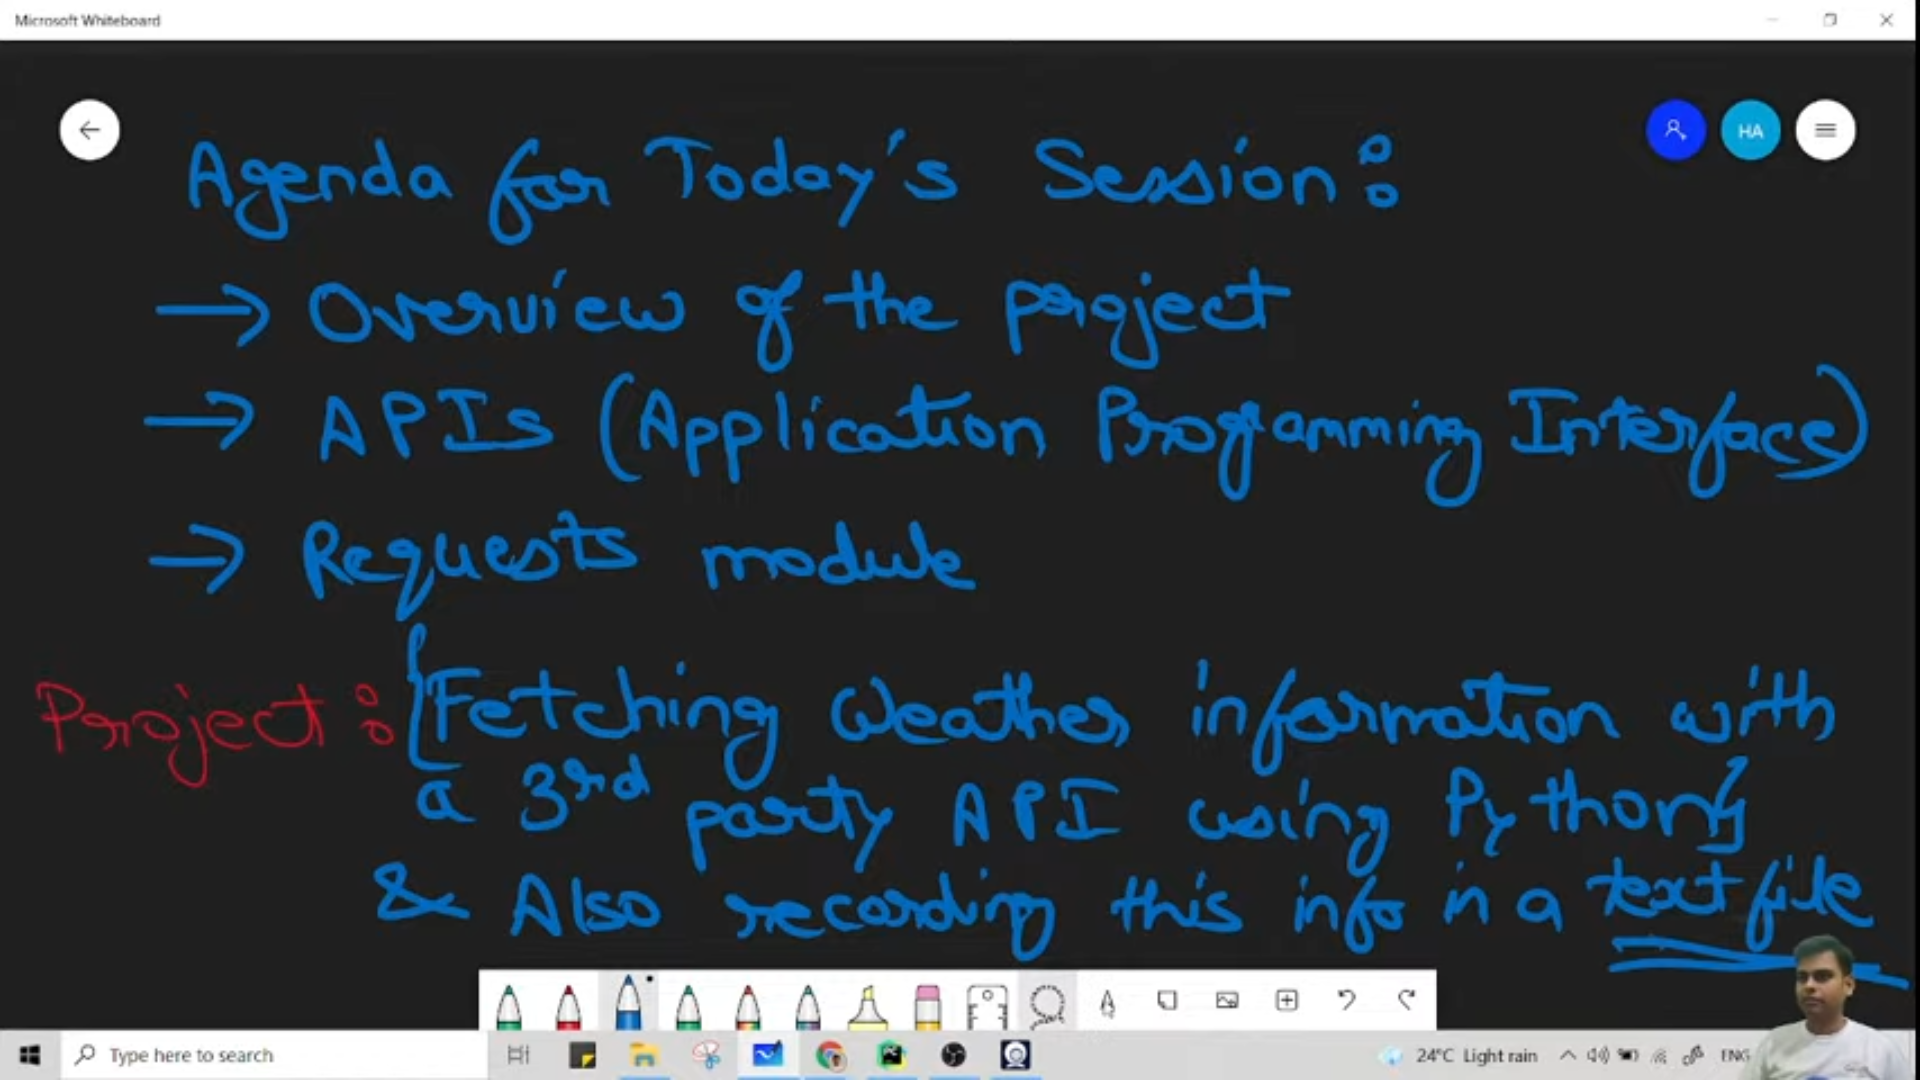 Microsoft Whiteboard
HA
Agenda for Today's Session:
→ Overview of the project
→ APIs (Application Programming Interface)
→ Requests module
Project: {Fetching Weather information with
a 3rd party API using Python}
& Also recording this info in a text file
Type here to search
24°C Light rain
ENG